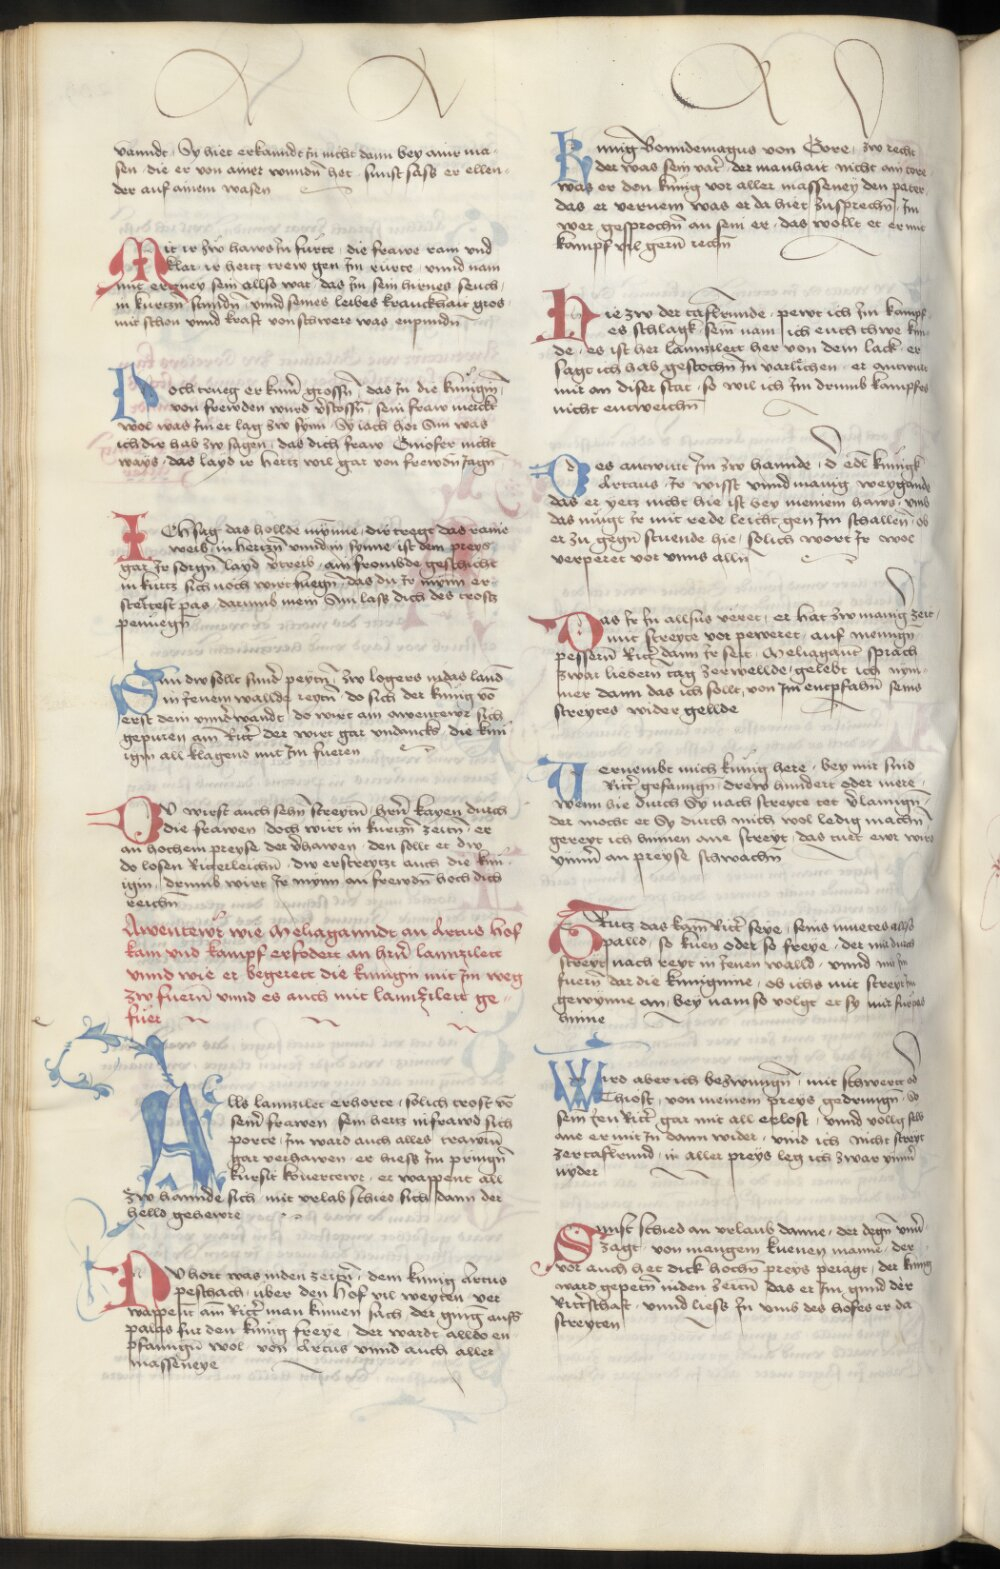 vanndt · Sy hiet erkanndt in nicht dann bey ainr ma-
sen · die er von ainer wundn het · sunst sass er ellen-
der auf ainem wasen
Mit ir zw haws in fürte · die frawe rain vnd
klar · ir hertz trew gen im rürte · vnnd nam
mit ertzney sein allso war · das im sein hirnes seuch ·
in kurtzn stundn · vnnd seines leibes kranckhait gros
mit schon vnnd krafft von schwere was enpundn
Doch trueg er kumer grossn · das in die kunigin
von frewden wurd verstossn · sein fraw merckt
wol was im et lag zw synn · Sy iach hor Sun was
ich dir hab zw sagen · das dich fraw Ginofer nicht
ways · das layd ir hertz wil gar von frewdn iagn
ICh sag das hollde mynne · dir tregt das raine
weib · in hertzn vnnd in synne · ist dem preys
gar ir sorgn layd vertreib · ain frombde geschicht
in kurtz sich noch wirt fuegn · das du ir mynn er-
stettest pas · darumb mein Sun lass dich des trosts
penuegn
Sun dw sollt sunder peytn · zw logers in das land
in ienem wallde reytn · do sich der kunig von
erst dein vnnderwandt · do wirt ain awentewr sich
gepuren ain Ritter der wirt gar vndancks · die kun-
igin all klagend mit im fueren
DV wirst auch sehn streytn · hern kayen durch
die frawen doch wirt in kurtzn zeitn · er
an hochem preyse der verhawen · den sollt et dw
do losen Ritterleichn · dw erstreytzt auch die kun-
igin · drumb wirt ir mynn an frewdn hoch dich
reichn
Awentewr wie Meliaganndt an Artus hof
kam vnd kampf erfodert an hern lannzilett
vnnd wie er begerett die kunigin mit im weg
zw fuern vnnd es auch mit lannzilett ge-
fuer
Alls lannzilet erhorte · solich trost von
seiner frawen · sein hertz in frawd sich
porte · im ward auch alles trawrn
gar verhawen · er hiess im pringn
kursit kouertewr · er wappent all
zw hannde sich · mit vrlab schied sich dann der
helld gehewre
DV hort was in den zeitn · dem kunig Artus
peschach · uber den hof vil weyten · ver
wappent ain Ritter man kumen sach · der gieng aufs
palas fur den kunig freye · der wardt alldo en-
pfanngn wol von Artus vnnd auch aller
masseneye
Kunig Bomdemagus von Gore · zw recht
der was sein vater · der manhait nicht ain tore
was er den kunig vor aller masseney den pater ·
das er vernem was er da hiet zusprechn · im
wer gesprochn an sein er · das wollt er mit
kampf vil gern rechn
Hie zw der tafelrunde · pewt ich im kampf
es schlagk · sein nam ich euch thwe kun-
de · es ist her lannzilett her von dem lack · er
sagt ich hab gestochn in varlichen · er antwurt
mir an diser stat · so wil ich im drumb kampfes
nicht entweichn
Des antwurt im zw hannde · der edl kunigk
Artaus · ir wisst vnnd manig weygande
das er yetz nicht hie ist bey meinem haws · vmb
das mugt ir mit rede leicht gen im schallen · ob
er zu gegn stuende hie · solich wort ir wol
verperet vor vnns alln
Das ir in allsus veret · er hat zw manig zeit ·
mit streyte vor peweret · auf mengn
pessern Ritter dann ir seit · Meliagant sprach
zwar liebern tag zerwellde · gelebt ich nym-
mer dann das ich sollt · von im entpfahn seins
streytes wider gellde
Vernembt mich kunig here · bey mir sind
Ritter gefanngn drew hundert oder mere ·
wenn hie durch Sy nach streyte tet verlanngn ·
der mocht et Sy durch mich wol ledig machn
gereyt ich hinnen ane streyt · das tuet ewr wirt
ymmer an preyse schwachn
Trutz das kain Ritter seye · seins muetes allso
palld · so kuen oder so freye · der mir durch
streyt nach reyt in ienen walld · vnnd mir im
fuern dar die kuniginne · ob ichs mit streyt im
gewynne an · bey nam so volgt er sy mir fur pas
hinne
Wird aber ich bezwungn · mit schwert od
Thiost · von meinem preys gedrungn · so
sein ien Ritter gar mit all erlost · vnnd vollg selb
ane er mit in dann wider · vnnd ich nicht streyt
zer tafelrund · in aller preys leg ich zwar ymmer
nyder
Sunst schied an vrlaub danne · der degn vnver-
zagt · von mangem kuenen manne · der
vor auch het dick hochn preys peiagt · der kunig
ward gepetn in den zeitn das er im gund der
Ritterschaft · vnnd liess in vmb des hofes er da
streyten